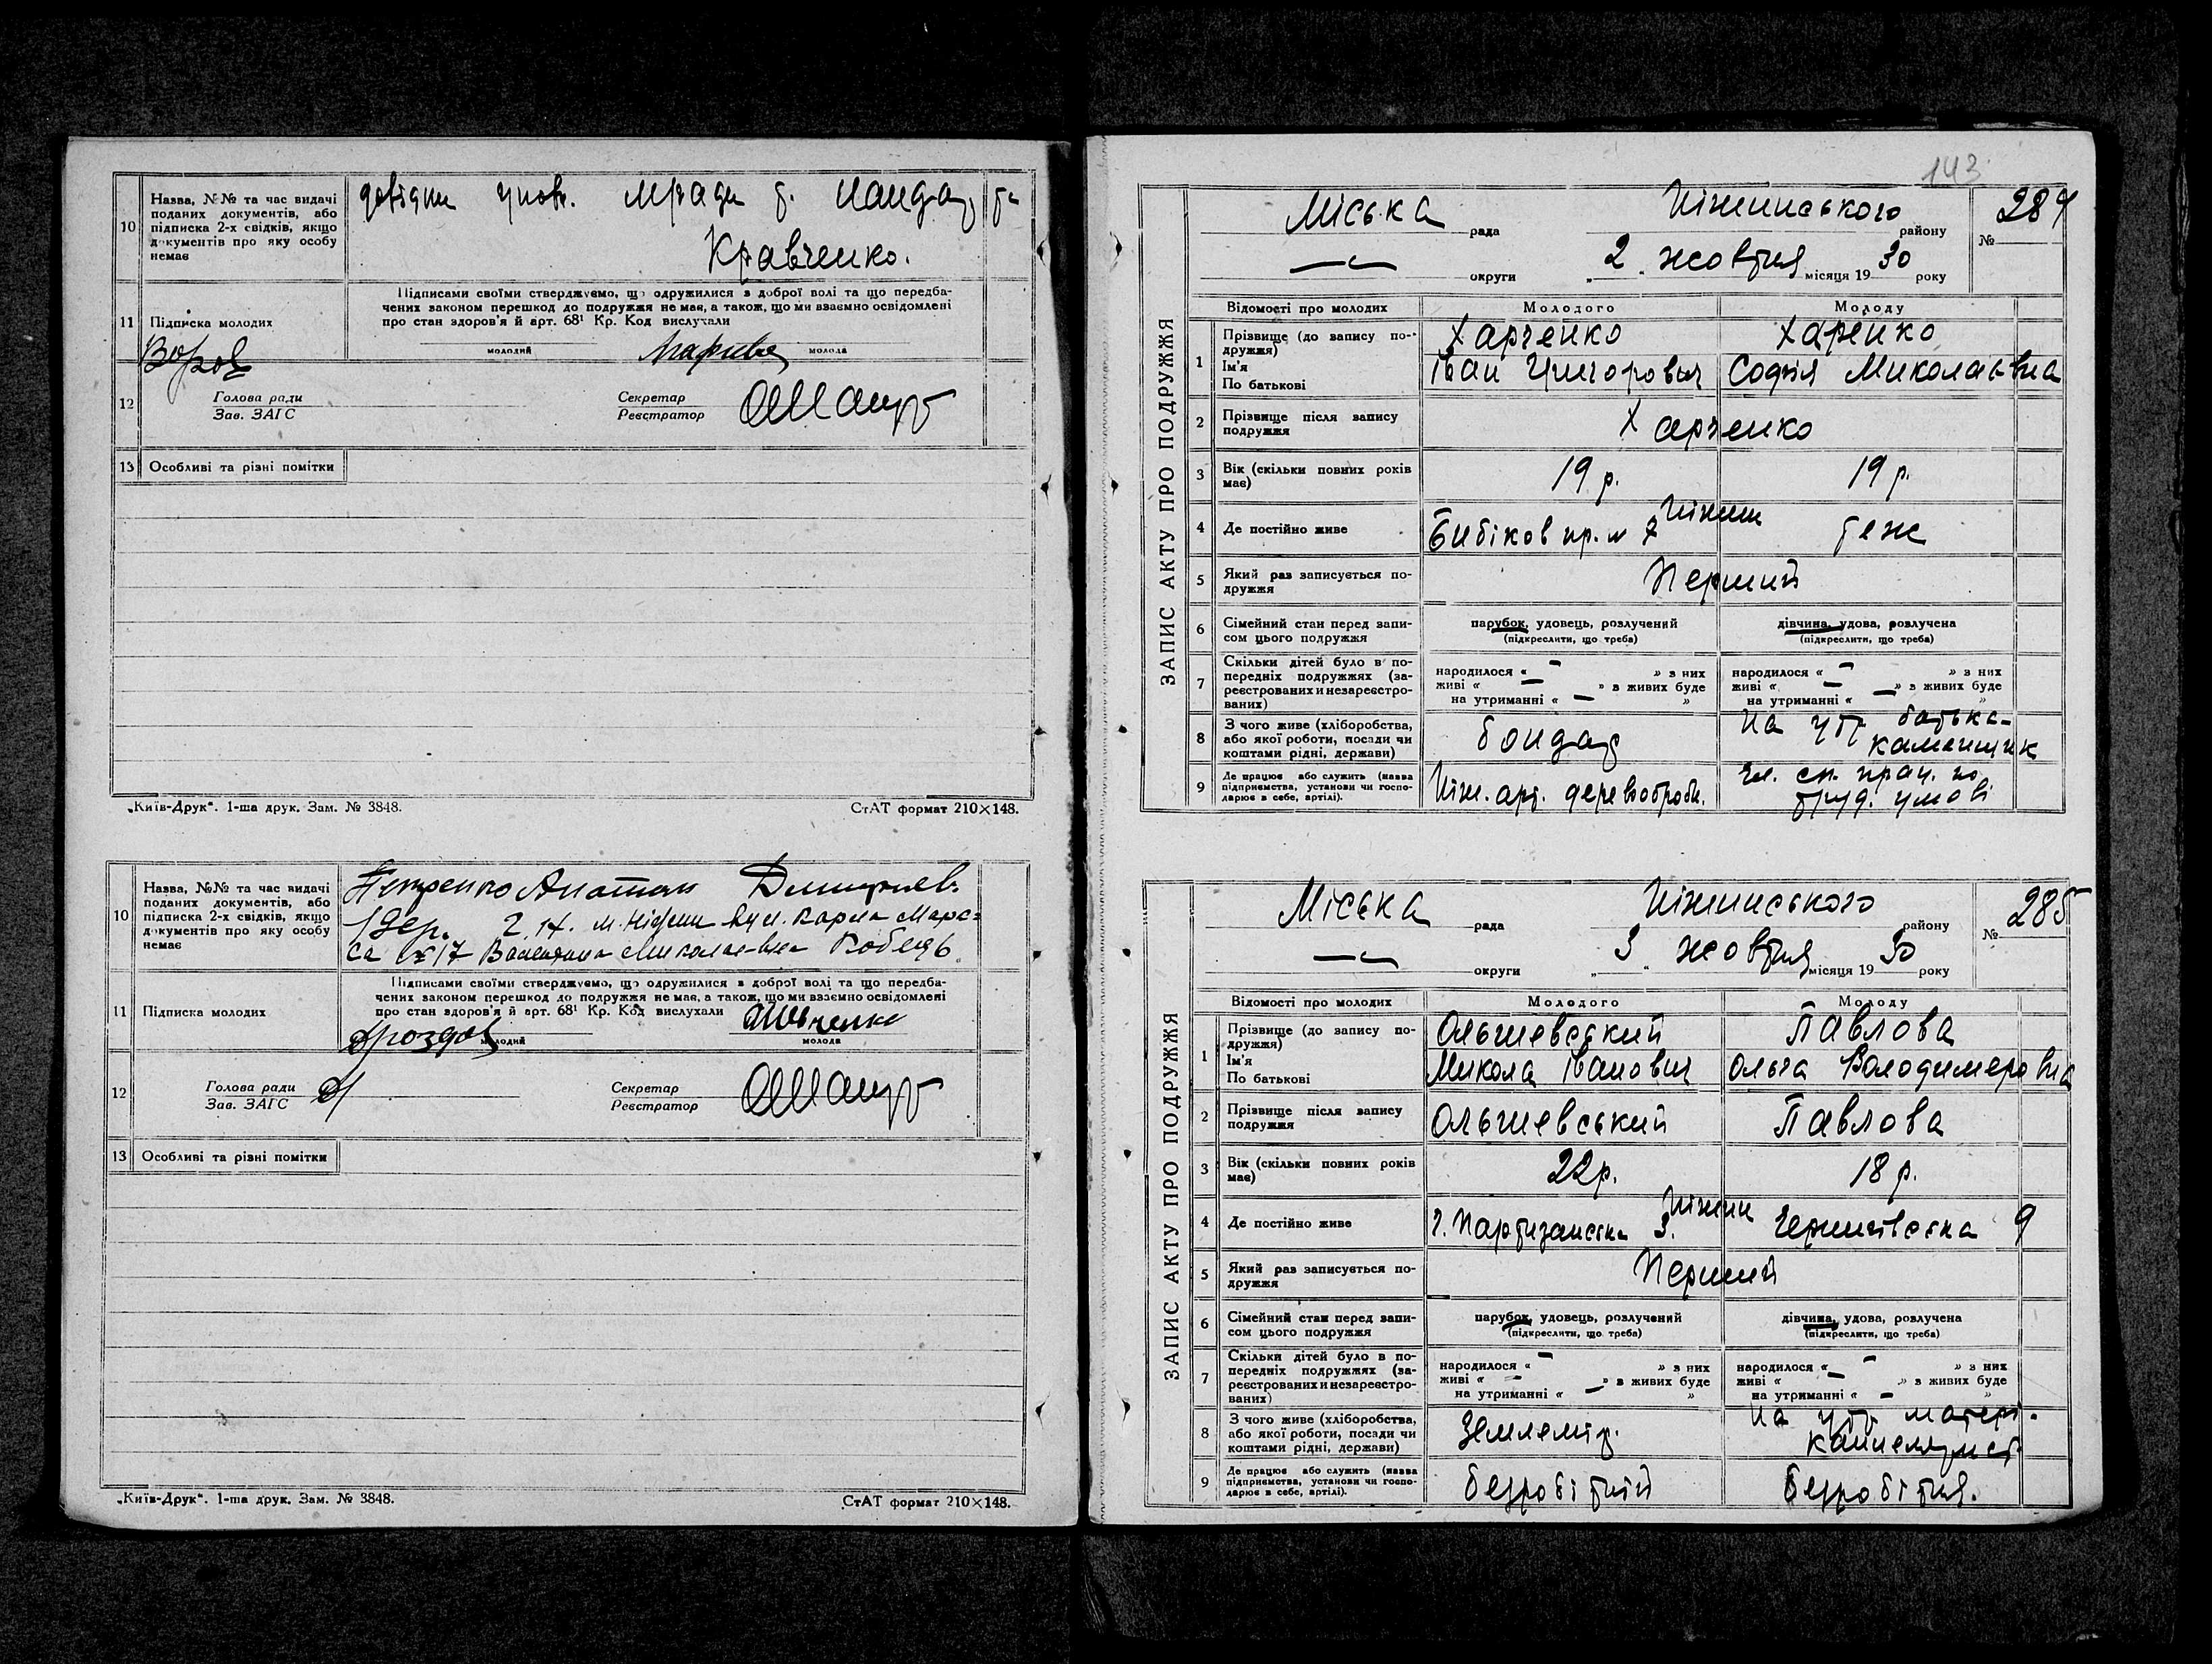 10
Назва, №№ та час видачі
поданих документів, або
підписка 2-х свідків, якщо
документів про яку особу
немає
довідки упов. мради
Кравченко.
Підписами своїми стверджуємо, що одружилися з доброї волі та що передба-
чених законом перешкод до подружжя не має, а також, що ми взаємно освідомлені
про стан здоров'я й арт. 68¹ Кр. Код вислухали
11 Підписка молодих
молодий
молода
12
Голова ради
Зав. ЗАГС
Секретар
Реєстратор
13 Особливі та різні помітки
„Київ-Друк“. 1-ша друк. Зам. № 3848.
СтАТ формат 210×148.
10
Назва, №№ та час видачі
поданих документів, або
підписка 2-х свідків, якщо
документів про яку особу
немає
Петренко Анатоли Дмитриев.
м. Ніжин вул. Карла Марк-
са №17 Валентина Миколаевна Кобець
Підписами своїми стверджуємо, що одружилися з доброї волі та що передба-
чених законом перешкод до подружжя не має, а також, що ми взаємно освідомлені
про стан здоров'я й арт. 68¹ Кр. Код вислухали
11 Підписка молодих
Дроздов молодий
молода
12
Голова ради
Зав. ЗАГС
Секретар
Реєстратор
13 Особливі та різні помітки
„Київ-Друк“. 1-ша друк. Зам. № 3848.
СтАТ формат 210×148.
143
ЗАПИС АКТУ ПРО ПОДРУЖЖЯ
Міська рада Ніжинського району № 284
округи „2 жовтня місяця 1930 року
Відомості про молодих Молодого Молоду
1
Прізвище (до запису по-
дружжя)
Ім'я
По батькові
Харченко Харенко
Іван Григорович Софія Миколаївна
2
Прізвище після запису
подружжя
Харченко
3
Вік (скільки повних років
має)
19 р. 19 р.
4 Де постійно живе
Ніжин
Бибіков пр. № 7 теж
5
Який раз записується по-
дружжя
Перший
6
Сімейний стан перед запи-
сом цього подружжя
парубок, удовець, розлучений
(підкреслити, що треба)
дівчина, удова, розлучена
(підкреслити, що треба)
7
Скільки дітей було в по-
передніх подружжях (за-
реєстрованих и незареєстро-
ваних)
народилося « – » з них
живі « – » з живих буде
на утриманні « – »
народилося « – » з них
живі « – » з живих буде
на утриманні « – »
8
З чого живе (хліборобства,
або якої роботи, посади чи
коштами рідні, держави)
бондар
на утр батька-
каменщик
9
Де працює або служить (назва
підприємства, установи чи госпо-
дарює в себе, артілі).
Ніж. арт. деревообробн.
чл. сп. прац. по
труд. умові
ЗАПИС АКТУ ПРО ПОДРУЖЖЯ
Міська рада Ніжинського району № 285
округи „3 жовтня місяця 1930 року
Відомості про молодих Молодого Молоду
1
Прізвище (до запису по-
дружжя)
Ім'я
По батькові
Ольшевський Павлова
Микола Іванович Ольга Володимеровна
2
Прізвище після запису
подружжя
Ольшевський Павлова
3
Вік (скільки повних років
має)
22р. 18 р.
4 Де постійно живе
Ніжин
Партизанська 3. Чернигівська 9
5
Який раз записується по-
дружжя
Перший
6
Сімейний стан перед запи-
сом цього подружжя
парубок, удовець, розлучений
(підкреслити, що треба)
дівчина, удова, розлучена
(підкреслити, що треба)
7
Скільки дітей було в по-
передніх подружжях (за-
реєстрованих и незареєстро-
ваних)
народилося « – » з них
живі « – » з живих буде
на утриманні « – »
народилося « – » з них
живі « – » з живих буде
на утриманні « – »
8
З чого живе (хліборобства,
або якої роботи, посади чи
коштами рідні, держави)
Землемір.
на утр матері.
канцелярист
9
Де працює або служить (назва
підприємства, установи чи госпо-
дарює в себе, артілі).
безробітній безробітня.